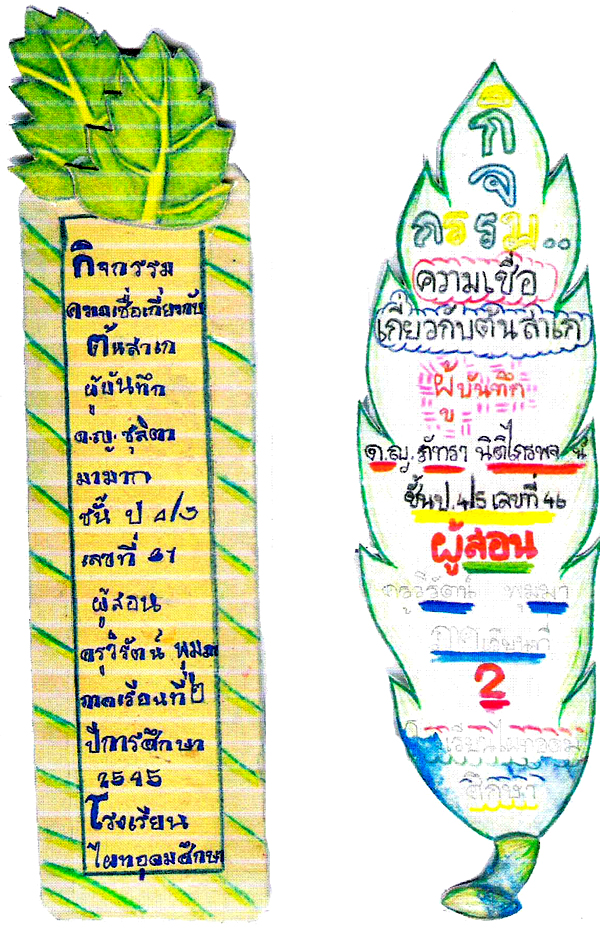 กิจกรรม
ความเชื่อเกี่ยวกับ
ต้นสาเก
ผู้บันทึก
ด.ญ. ชุลิตา
มามาก
ชั้น ป 4/5
เลขที่
ผู้สอน
ครูวิรัตน์ พุมมา
ภาคเรียนที่ 2
ปีการศึกษา
2545
โรงเรียน
ไผทอุดมศึกษา
กิ
จ
กรรม..
ความเชื่อ
เกี่ยวกับต้นสาเก
ผู้บันทึก
ด.ญ. ภัทรา
ชั้นป.4/5 เลขที่ 46
ผู้สอน
ครูวิรัตน์ พุมมา
ภาคเรียนที่
2
โรงเรียนไผทอุดม
ศึกษา